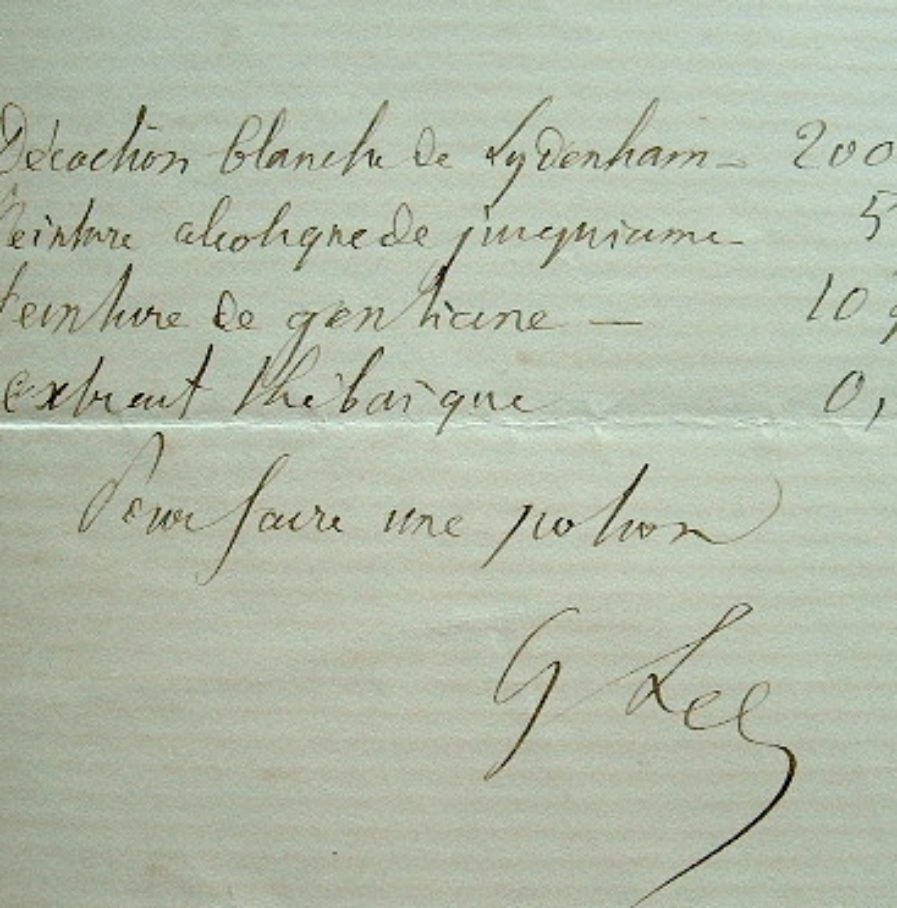 Décoction blanche de Sydenham - 200
Teinture alcoolique de jusquiame - 5
teinture de gentiane — 10 g
extrait thébaïque 0,
Pour faire une potion
G Lee